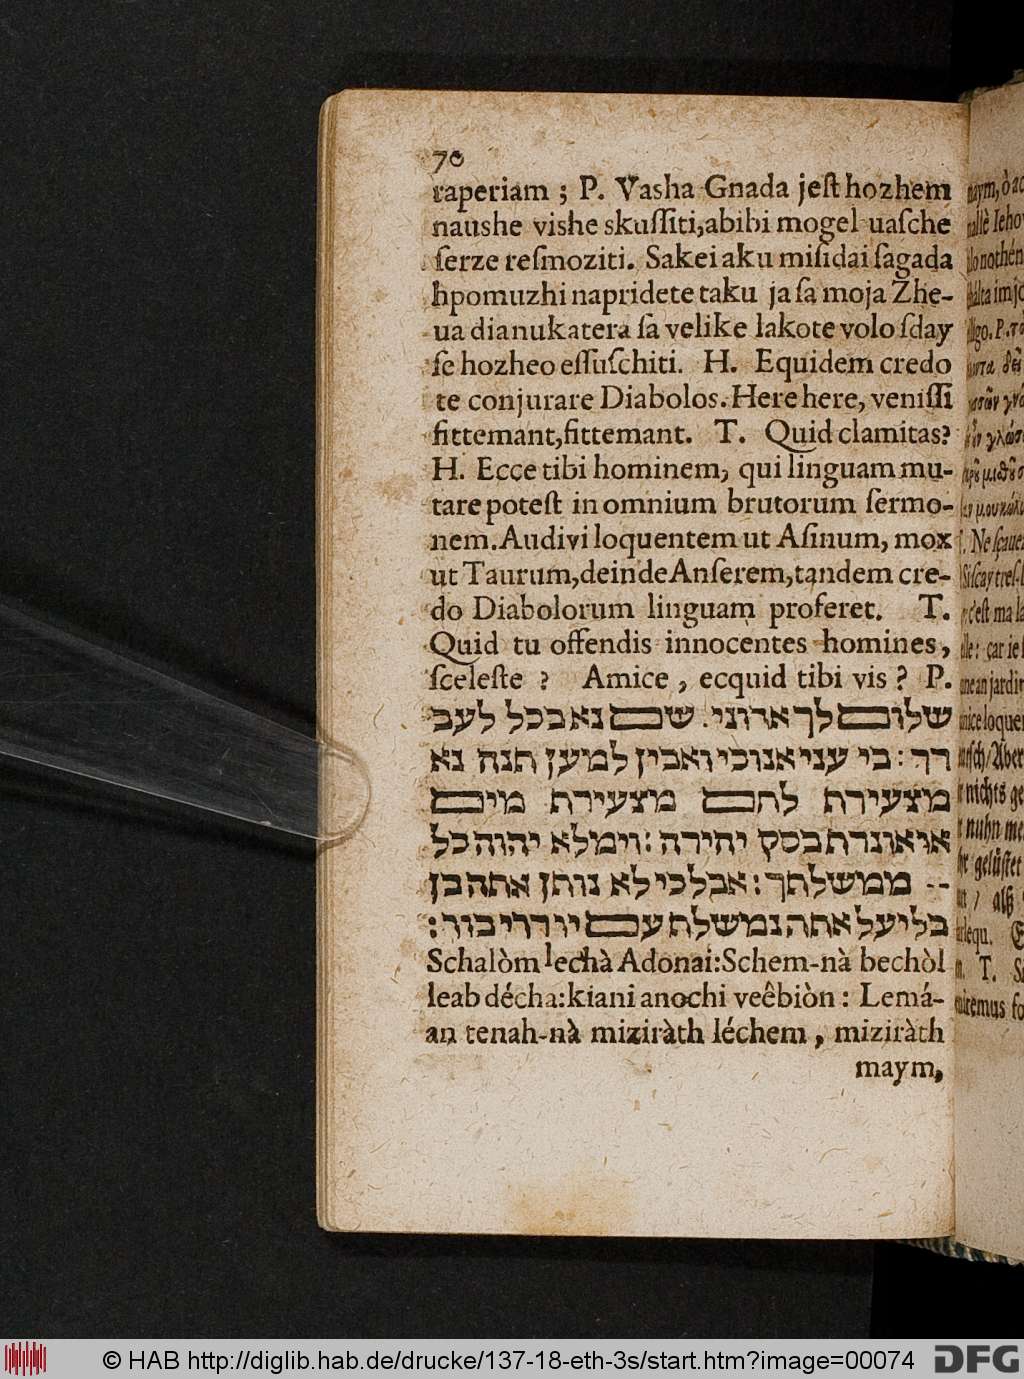 70
raperiam ; P. Vasha Gnada jeſt hozhem
naushe vishe skuſſiti, abibi mogel uaſche
ſerze reſmoziti. Sakei aku miſidai ſagada
hpomuzhi napridete taku ja ſa moja Zhe-
ua dianukatera ſa velike lakote volo ſday
ſe hozheo eſſuſchiti. H. Equidem credo
te conjurare Diabolos. Here here, veniſſi
fittemant, fittemant. T. Quid clamitas?
H. Ecce tibi hominem, qui linguam mu-
tare poteſt in omnium brutorum ſermo-
nem. Audivi loquentem ut Aſinum, mox
ut Taurum, deinde Anſerem, tandem cre-
do Diabolorum linguam proferet. T.
Quid tu offendis innocentes homines,
ſceleſte ? Amice , ecquid tibi vis ? P.
שלום לך ארוני. שם נא בכל לעב
רך : בי עני אנוכי ואביון למען תנח נא
מצעירת לחם מצעירת מים
או אונרת בסק יחירה : וימלא יהוה כל
-- ממשלתך : אבל כי לא נותן אתה בן
בליעל אתה נמשלת עם יורדי בור :
Schalòm lechà Adonai: Schem-nà bechòl
leab décha: kiani anochi veêbiòn : Lemá-
an tenah-nà miziràth léchem , miziràth
maym,
naym, ò ac
nallè Ieho
lgo. P. το
c'eſt ma la
elle : car ie
ane an jardin
nice loquer
nichts ge
nuhn me
gelüſtet
/ alß
T.
© HAB http://diglib.hab.de/drucke/137-18-eth-3s/start.htm?image=00074
DFG